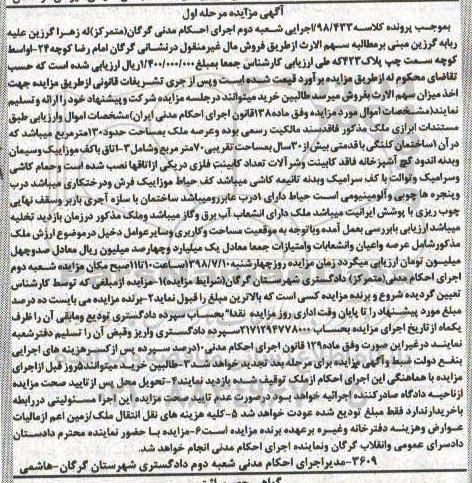 آگهی مزایده مرحله اول
بموجب پرونده کلاسه ۹۸/۴۳۳/اجرایی شعبه دوم اجرای احکام مدنی گرگان(متمرکز)له زهرا گرزین علیه
ربابه گرزین مبنی بر مطالبه سهم الارث ازطریق فروش مال غیرمنقول درنشانی گرگان امام رضا کوچه ۲۴-اواسط
کوچه سمت چپ پلاک ۴۲۳که طی ارزیابی کارشناس جمعا بمبلغ ۱/۴۰۰/۰۰۰/۰۰۰ریال ارزیابی شده است که حسب
تقاضای محکوم له ازطریق مزایده برآورد قیمت شده است وپس از جری تشریفات قانونی ازطریق مزایده جهت
اخذ میزان سهم الارث بفروش میرسد طالبین خرید میتوانند درجلسه مزایده شرکت وپیشنهاد خود را ارائه وتسلیم
نمایند(مشخصات اموال مورد مزایده وفق ماده ۱۳۸قانون اجرای احکام مدنی ایران)مشخصات اموال وارزیابی طبق
مستندات ابرازی ملک مذکور فاقدسند مالکیت رسمی بوده وعرصه ملک بمساحت حدود ۱۳۰مترمربع میباشد که
در آن ۱ساختمان کلنگی با قدمتی بیش از ۳۰سال بمساحت تقریبی ۷۰مترمربع وشامل ۳-اتاق باکف موزاییک وسیمان
وبدنه اندود گچ آشپزخانه فاقد کابینت وشرآلات تعداد کابینت فلزی دریکی ازاتاقها نصب شده است وحمام کاشی
وسرامیک وتوالت با کف سرامیک وبدنه تانیمه کاشی میباشد کف حیاط موزاییک فرش ودرختکاری میباشد درب
وپنجره ها چوبی وآلومینیومی است حیاط دارای ۱درب عابررومیباشد ساختمان با سازه آجری باربر وسقف نهایی
چوب ریزی با پوشش ایرانیت میباشد ملک دارای انشعاب آب برق وگاز میباشد وملک مذکور درزمان بازدید تخلیه
میباشد ارزیابی بابررسی بعمل آمده وباتوجه به موقعیت مساحت وکاربری وسایرعوامل دخیل درموضوع ارزش ملک
مذکورشامل عرصه واعیان وانشعابات وامتیازات جمعا معادل یک میلیارد وچهارصد میلیون ریال معادل صدوچهل
میلیون تومان ارزیابی میگردد زمان مزایده روزچهارشنبه ۱۳۹۸/۷/۱۰ساعت ۱۰تا۱۱صبح مکان مزایده شعبه دوم
اجرای احکام مدنی(متمرکز)دادگستری شهرستان گرگان(شرایط مزایده)۱-مزایده ازمبلغی که توسط کارشناس
تعیین گردیده شروع و برنده مزایده کسی است که بالاترین مبلغ را قبول نماید ۲-برنده مزایده می بایست ده درصد
مبلغ مورد پیشنهاد را تا پایان وقت اداری روز مزایده نقدا" بحساب سپرده دادگستری تودیع ومابقی آن را ظرف
یکماه از تاریخ اجرای مزایده بحساب ۲۱۷۱۲۹۴۷۷۸۰۰۰سپرده دادگستری واریز وقبض آن را تسلیم دفترشعبه
نماینــد درغیراین صورت وفق ماده ۱۲۹ قانون اجرای احکام مدنی ۱۰درصد سپرده پس ازکسرهزینه های اجرایی
بنفع دولت ضبط وآگهی مزایده برای مرحله بعد تجدید خواهد شد ۳-طالبین خرید میتوانند ۵روز قبل ازاجرای
مزایده با هماهنگی این اجرای احکام ازملک توقیف شده بازدید نمایند ۴-تحویل محل پس از تایید صحت مزایده
ازناحیه دادگاه صادرکننده اجرائیه خواهد بود درصورت عدم تایید صحت مزایده این اجرا مسئولیتی دررابطه
باخریدارندارد فقط مبلغ تودیع شده عودت خواهد شد ۵-کلیه هزینه های نقل انتقال ملک/زمین اعم ازمالیات
عوارض وهزینه دفترخانه وغیره برعهده برنده مزایده است ۶-مزایده با حضور نماینده محترم دادستان
دادسرای عمومی وانقلاب گرگان ونماینده اجرای احکام مدنی انجام خواهد شد.
۳۶۰۹-مدیراجرای احکام مدنی شعبه دوم دادگستری شهرستان گرگان-هاشمی